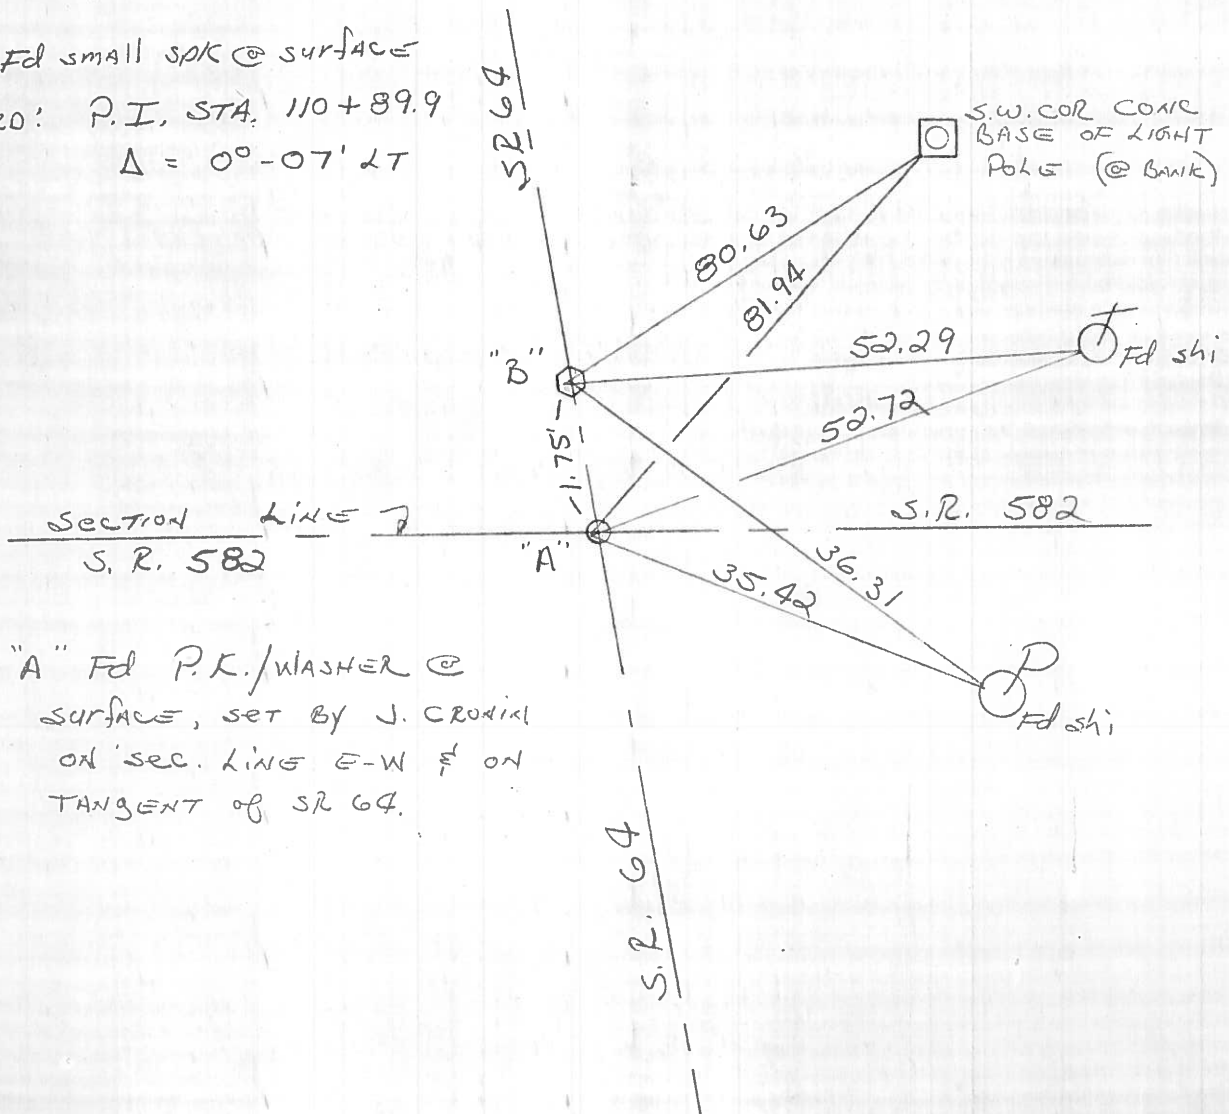 Fd small spk @ surface
20' P.I. STA. 110+89.9
Δ = 0°-07' LT
SR 64
S.W. COR CONC
BASE OF LIGHT
POLE (@ BANK)
80.63
81.94
"B"
52.29
T
Fd shi
52.72
1.75'
SECTION LINE
S.R. 582
S.R. 582
"A"
35.42
36.31
P
Fd shi
"A" Fd P.K./WASHER @
surface, set BY J. CRONIN
ON sec. LINE E-W & ON
TANgENT of SR 64.
S.R. 64